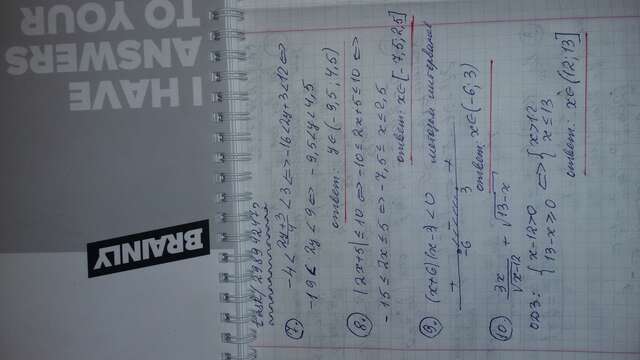 BRAINLY
I HAVE
ANSWERS
TO YOUR
task/29894247
7. -4 < (2y+3)/4 < 3 ⇔ -16 < 2y+3 < 12 ⇔
-19 < 2y < 9 ⇔ -9,5 < y < 4,5
ответ: y ∈ (-9,5, 4,5)
8. |2x+5| ≤ 10 ⇔ -10 ≤ 2x+5 ≤ 10 ⇔
-15 ≤ 2x ≤ 5 ⇔ -7,5 ≤ x ≤ 2,5
ответ: x ∈ [-7,5; 2,5]
9. (x+6)(x-3) < 0 методом интервалов
+ - +
-6 3
ответ: x ∈ (-6; 3)
10. 3x/√(x-12) + √(13-x)
ОДЗ: { x-12>0 ⇔ { x>12
13-x ≥ 0 x ≤ 13
ответ: x ∈ (12; 13]